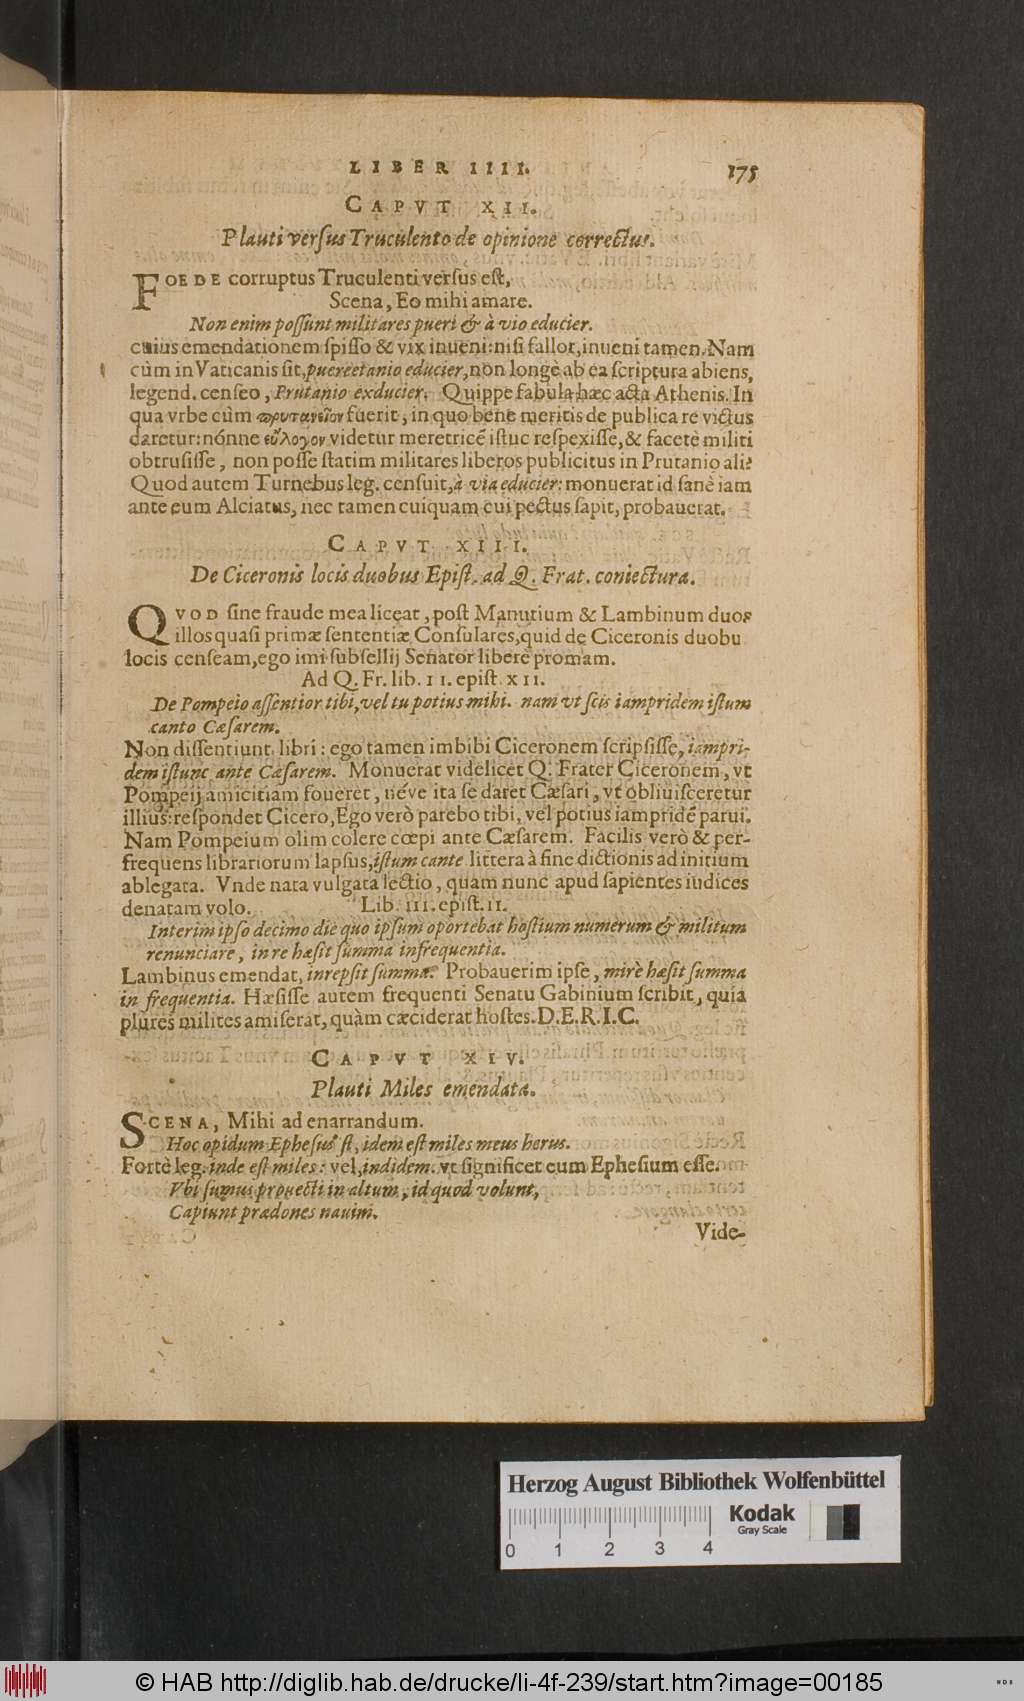 LIBER IIII. 175
CAPVT XII.
Plauti versus Truculento de opinione correctus.
FOEDE corruptus Truculenti versus est,
Scena, Eo mihi amare.
Non enim possunt militares pueri & à vio educier.
cuius emendationem spisso & vix inueni: nisi fallor, inueni tamen. Nam
cùm in Vaticanis sit, puereetanio educier, non longè ab ea scriptura abiens,
legend. censeo, Prutanio exducier. Quippe fabula hæc acta Athenis. In
qua vrbe cùm πρυτανεῖον fuerit, in quo bene meritis de publica re victus
daretur: nónne εὔλογον videtur meretricẽ istuc respexisse, & facetè militi
obtrusisse, non posse statim militares liberos publicitus in Prutanio ali?
Quod autem Turnebus leg. censuit, à via educier: monuerat id sanè iam
ante eum Alciatus, nec tamen cuiquam cui pectus sapit, probauerat.
CAPVT XIII.
De Ciceronis locis duobus Epist. ad Q. Frat. coniectura.
QVOD sine fraude mea liceat, post Manutium & Lambinum duos
illos quasi primæ sententiæ Consulares, quid de Ciceronis duobu
locis censeam, ego imi subsellij Senator liberè promam.
Ad Q. Fr. lib. II. epist. XII.
De Pompeio assentior tibi, vel tu potius mihi. nam vt scis iampridem istum
canto Cæsarem.
Non dissentiunt libri: ego tamen imbibi Ciceronem scripsisse, iampri-
dem istunc ante Cæsarem. Monuerat videlicet Q. Frater Ciceronem, vt
Pompeij amicitiam foueret, néve ita se daret Cæsari, vt obliuisceretur
illius: respondet Cicero, Ego verò parebo tibi, vel potius iampridẽ parui.
Nam Pompeium olim colere cœpi ante Cæsarem. Facilis verò & per-
frequens librariorum lapsus, istum cante littera à fine dictionis ad initium
ablegata. Vnde nata vulgata lectio, quam nunc apud sapientes iudices
denatam volo. Lib. III. epist. II.
Interim ipso decimo die quo ipsum oportebat hostium numerum & militum
renunciare, in re hæsit summa infrequentia.
Lambinus emendat, inrepsit summa. Probauerim ipse, mirè hæsit summa
in frequentia. Hæsisse autem frequenti Senatu Gabinium scribit, quia
plures milites amiserat, quàm cæciderat hostes. D.E.R.I.C.
CAPVT XIV.
Plauti Miles emendata.
SCENA, Mihi ad enarrandum.
Hoc opidum Ephesus st, idem est miles meus herus.
Fortè leg. inde est miles: vel, indidem. vt significet eum Ephesium esse.
Vbi sumus prouecti in altum, id quod volunt,
Capiunt prædones nauim.
Vide-
Herzog August Bibliothek Wolfenbüttel
Kodak
Gray Scale
0 1 2 3 4
© HAB http://diglib.hab.de/drucke/li-4f-239/start.htm?image=00185